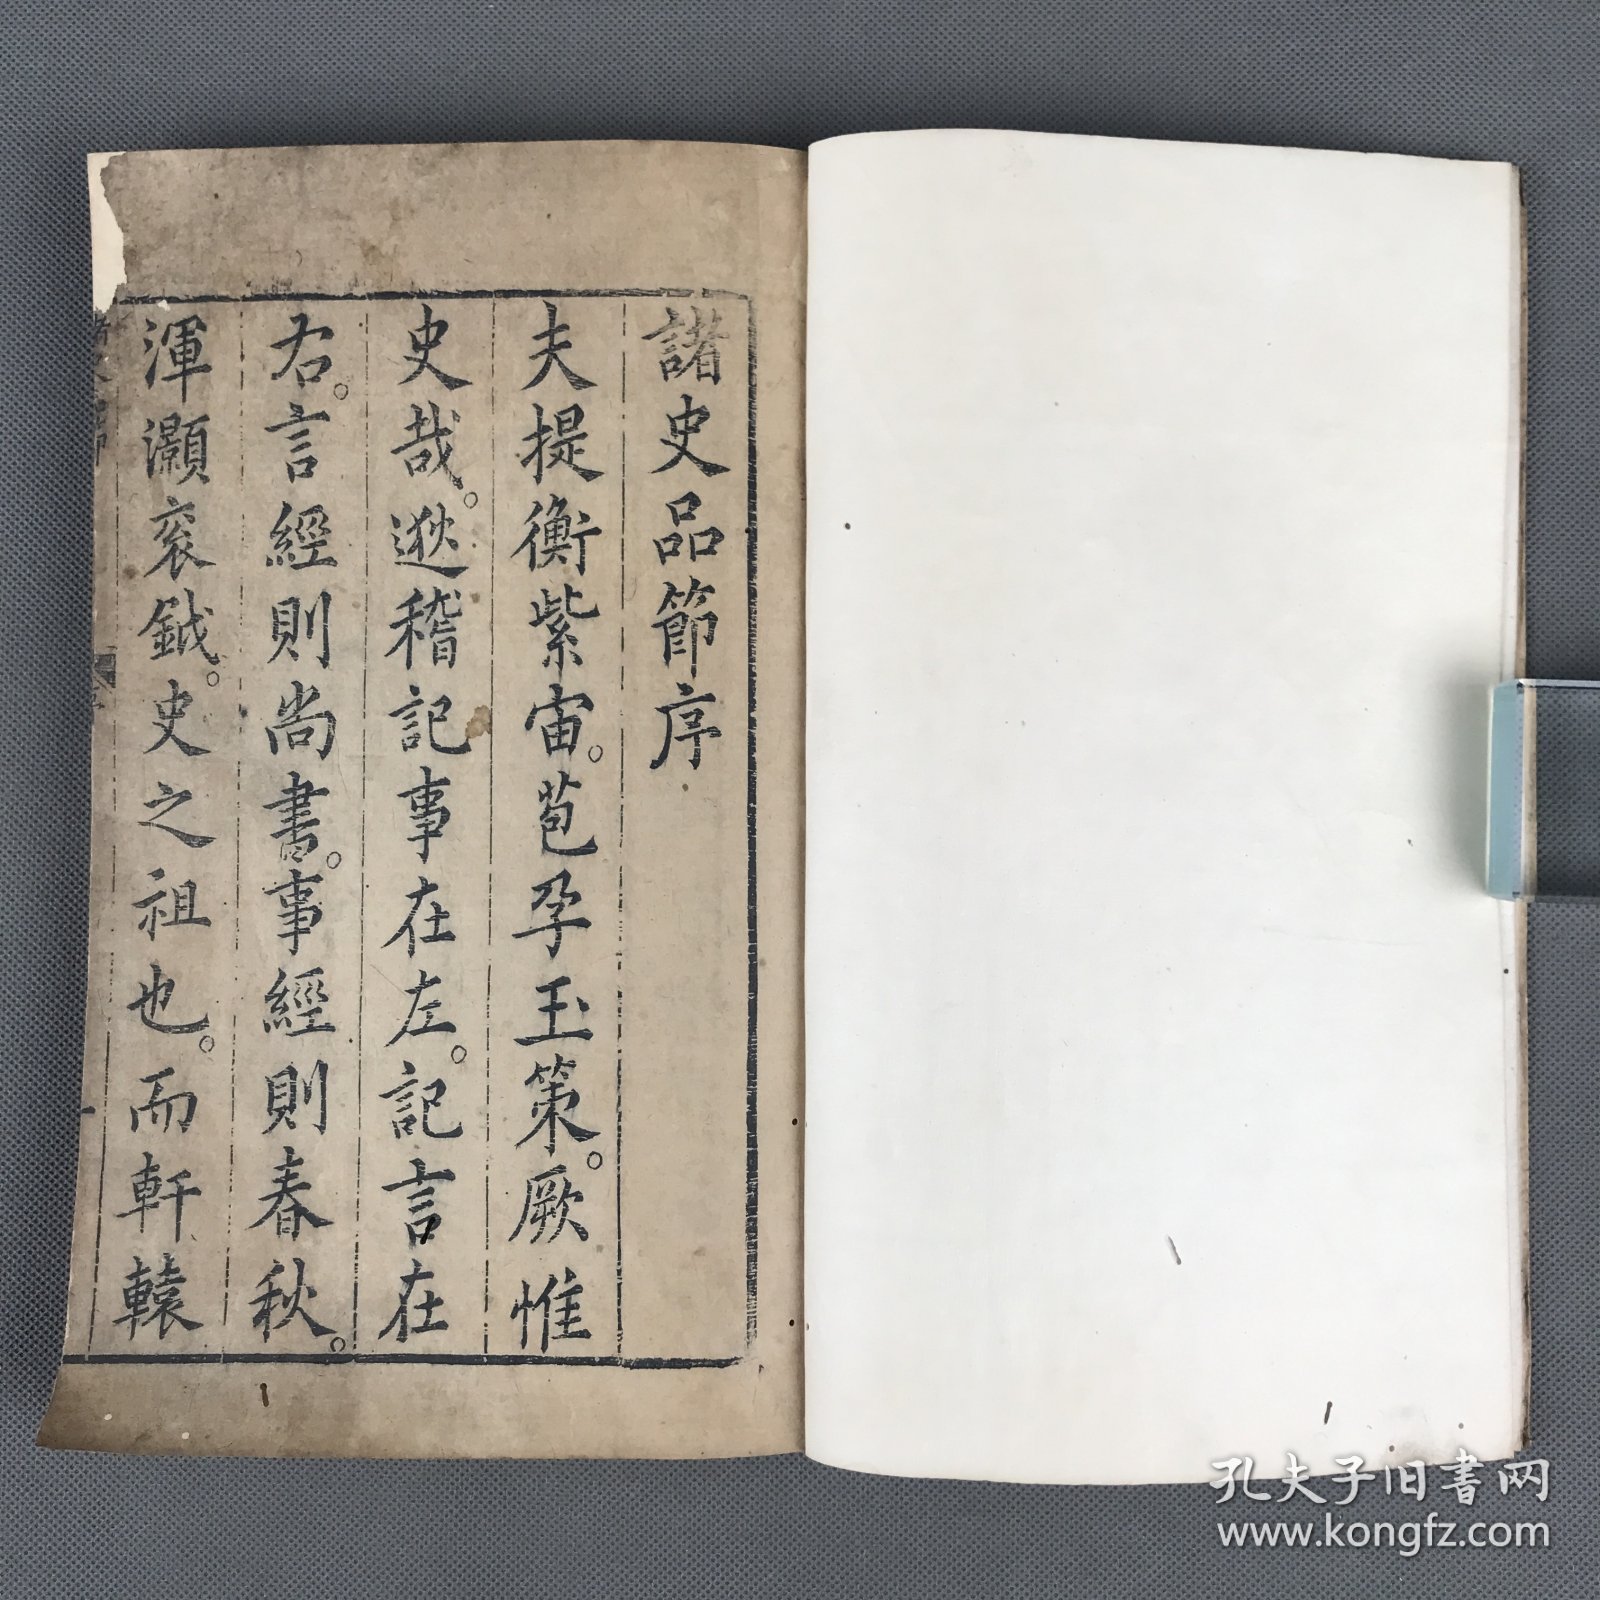 諸史品節序
夫提衡紫宙。苞孕玉策。厥惟
史哉。逖稽記事在左。記言在
右。言經則尚書。事經則春秋。
渾灝袞鉞。史之祖也。而軒轅
孔夫子旧书网
www.kongfz.com